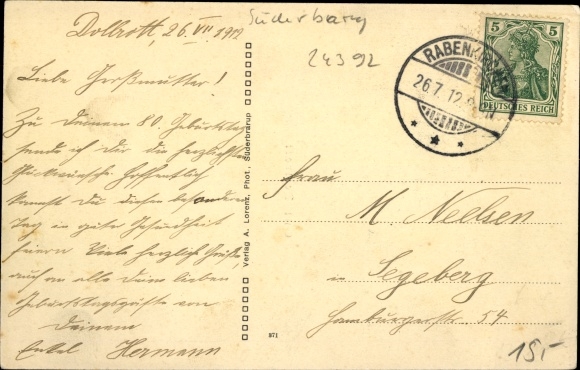 Dollrott, 26. VII 1912
Liebe Großmutter!
Zu Deinem 80. Geburtstag
sende ich Dir die herzlichsten
Glückwünsche. Hoffentlich
kannst Du diesen besonderen
Tag in guter Gesundheit
feiern. Viele herzliche Grüße,
auch an alle Deine lieben
Geburtstagsgäste von
Deinem
Enkel Hermann
Süderbarg
24392
Verlag A. Lorenz, Phot., Süderbrarup
RABENKIRCHEN
26.7.12
5 5
DEUTSCHES REICH
Frau
M. Neelsen
in Segeberg
Hamburgerstr. 54
371
15,-